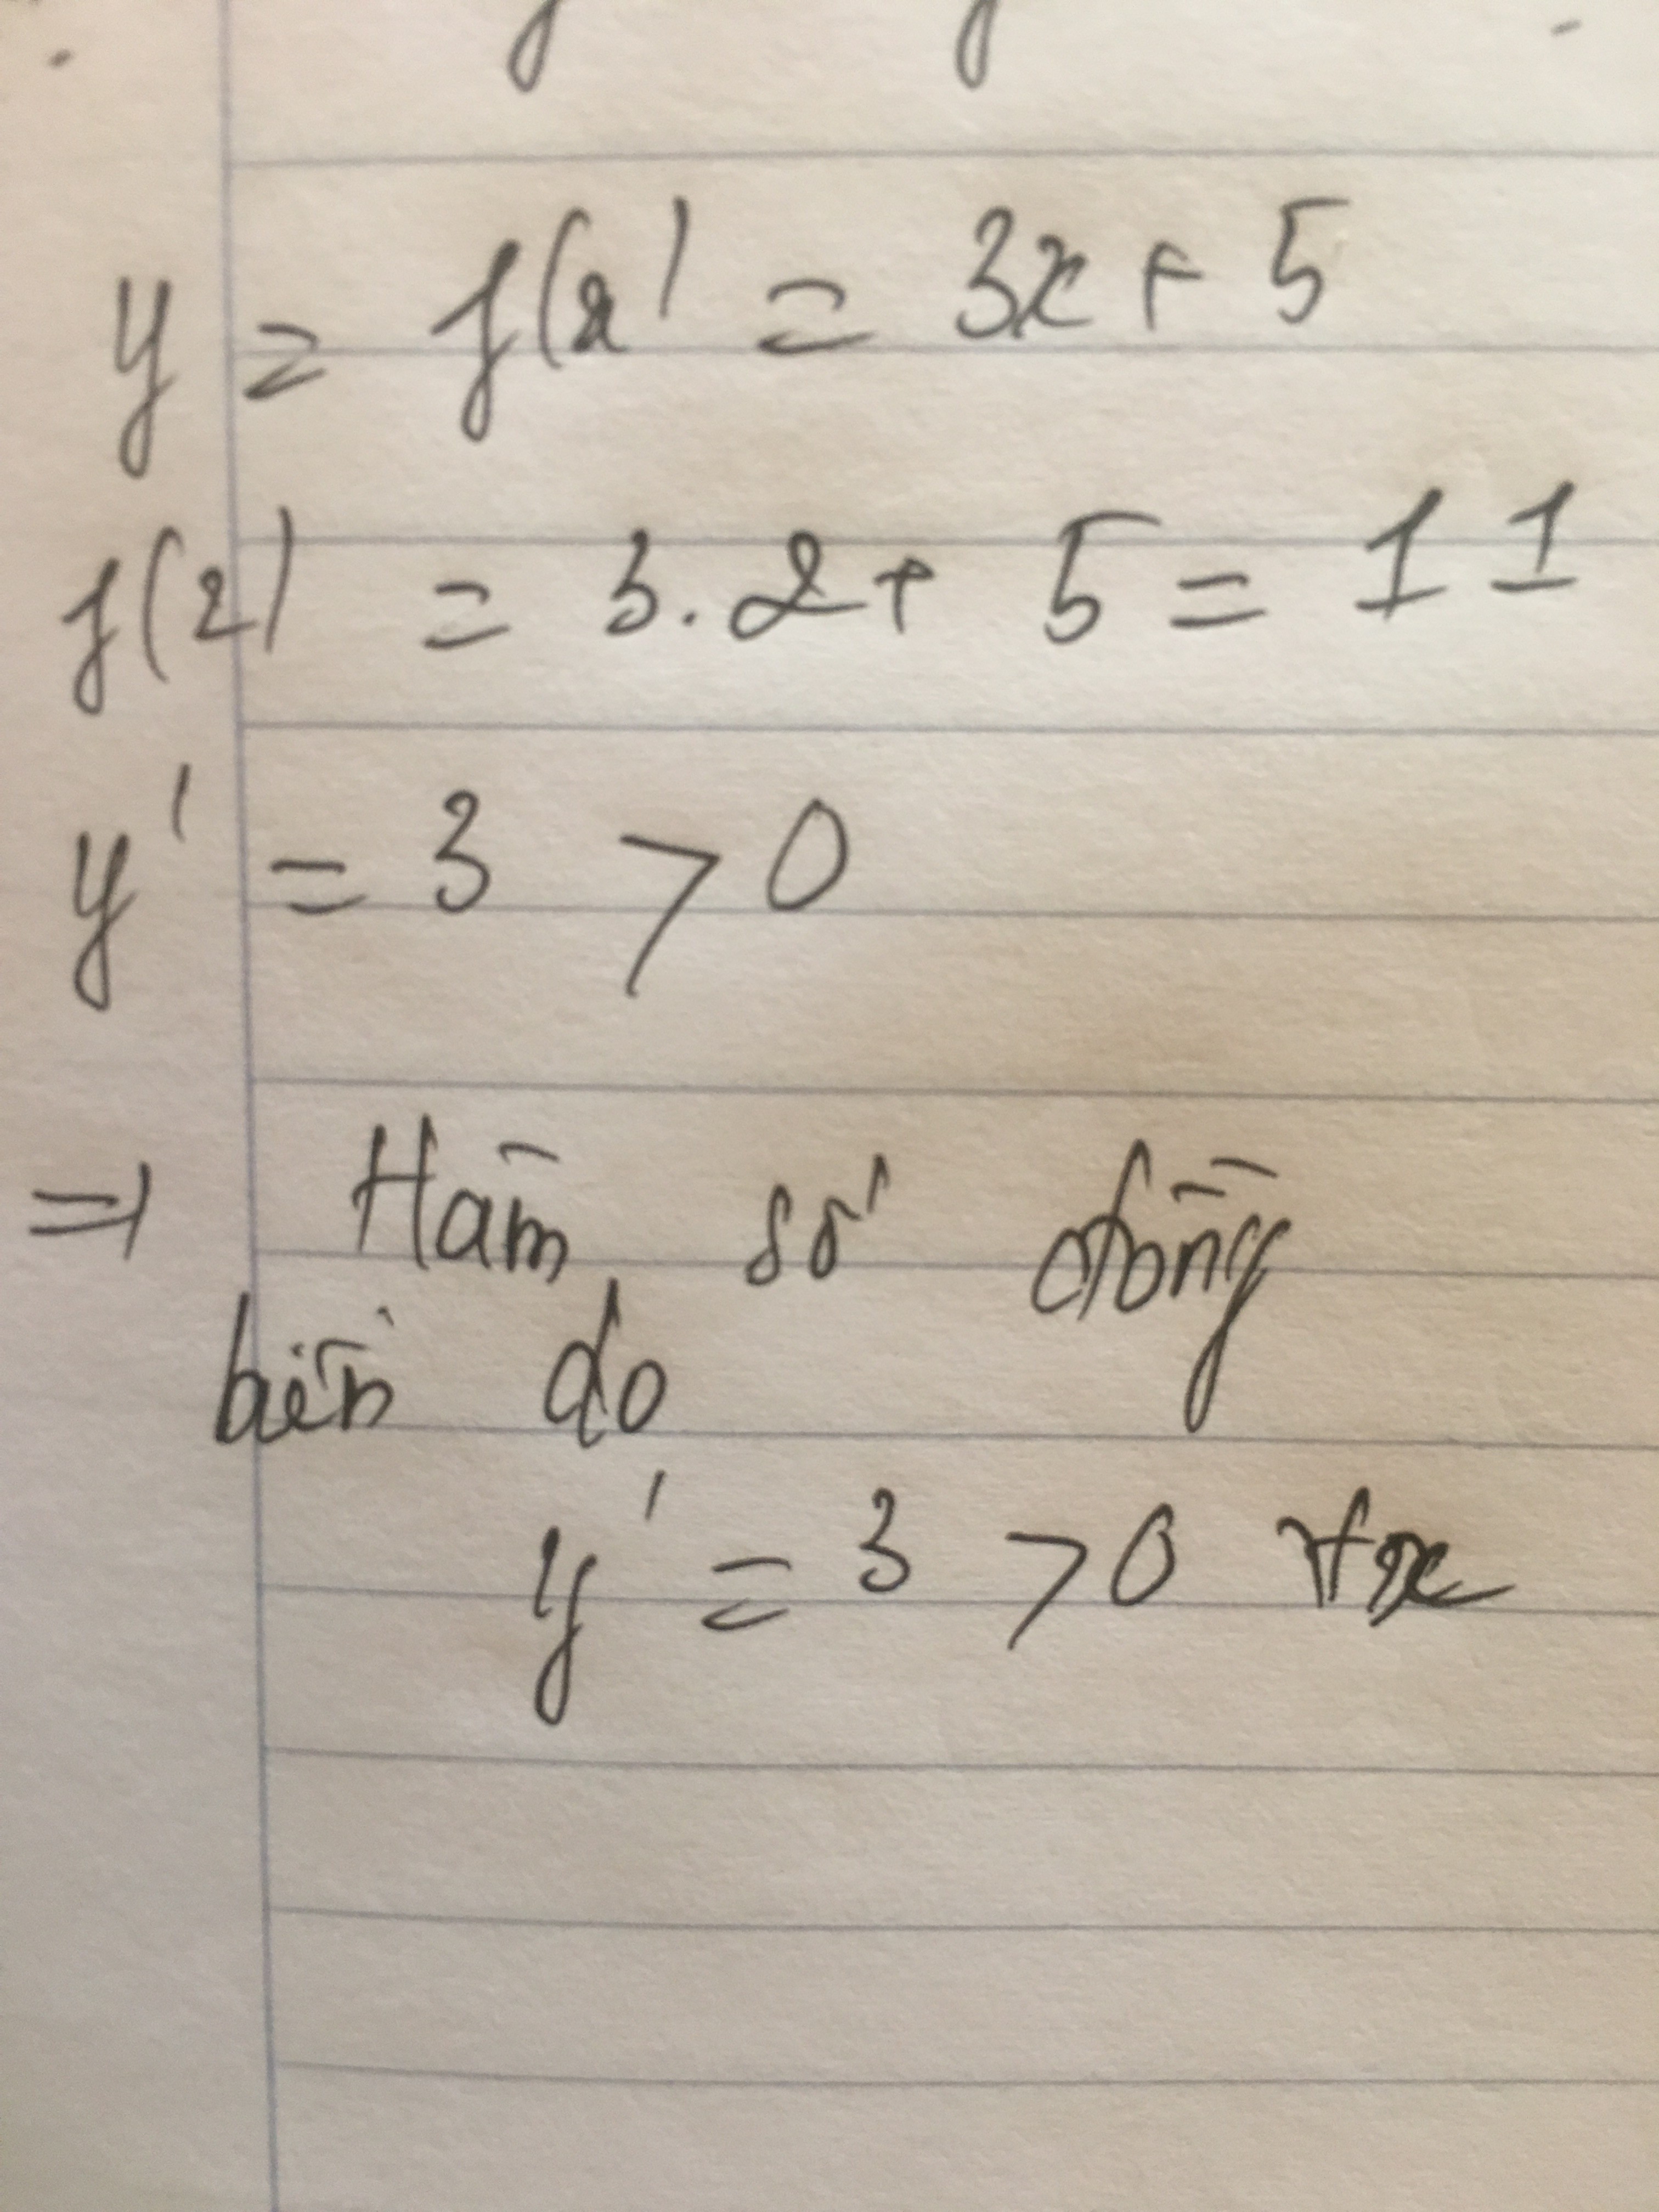 y = f(x) = 3x + 5
f(2) = 3.2 + 5 = 11
y' = 3 > 0
=> Hàm số đồng
biến do
y' = 3 > 0 ∀x